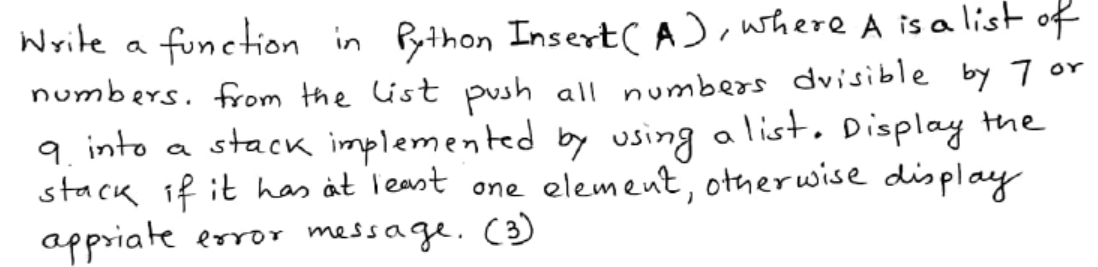 Write a function in Python Insert(A), where A is a list of
numbers. from the list push all numbers dvisible by 7 or
9. into a stack implemented by using a list. Display the
stack if it has at least one element, otherwise display
appriate error message. (3)